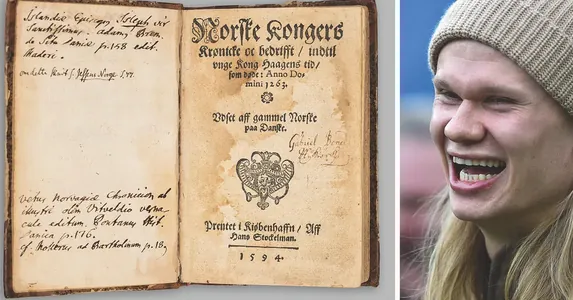 Islandiæ Episcopus Isleph vir
Sanctissimus. adam9 Brem.
de Situ Daniæ p. 158 edit.
Maderi.
vetus Norvagiæ Chronicon ab
illustri olim Vitveldio verna-
cule editum. Pontanus Hist.
Danica p. 176.
cf. nostrus ad Bartholinum p. 18,
Norske Kongers
Krønicke oc bedrifft / indtil
vnge Kong Haagens tid /
som døde: Anno Do-
mini 1263.
Vdset aff gammel Norske
paa Danske.
Gabriel
Prentet i Kiøbenhaffn / Aff
Hans Stockelman.
1594.